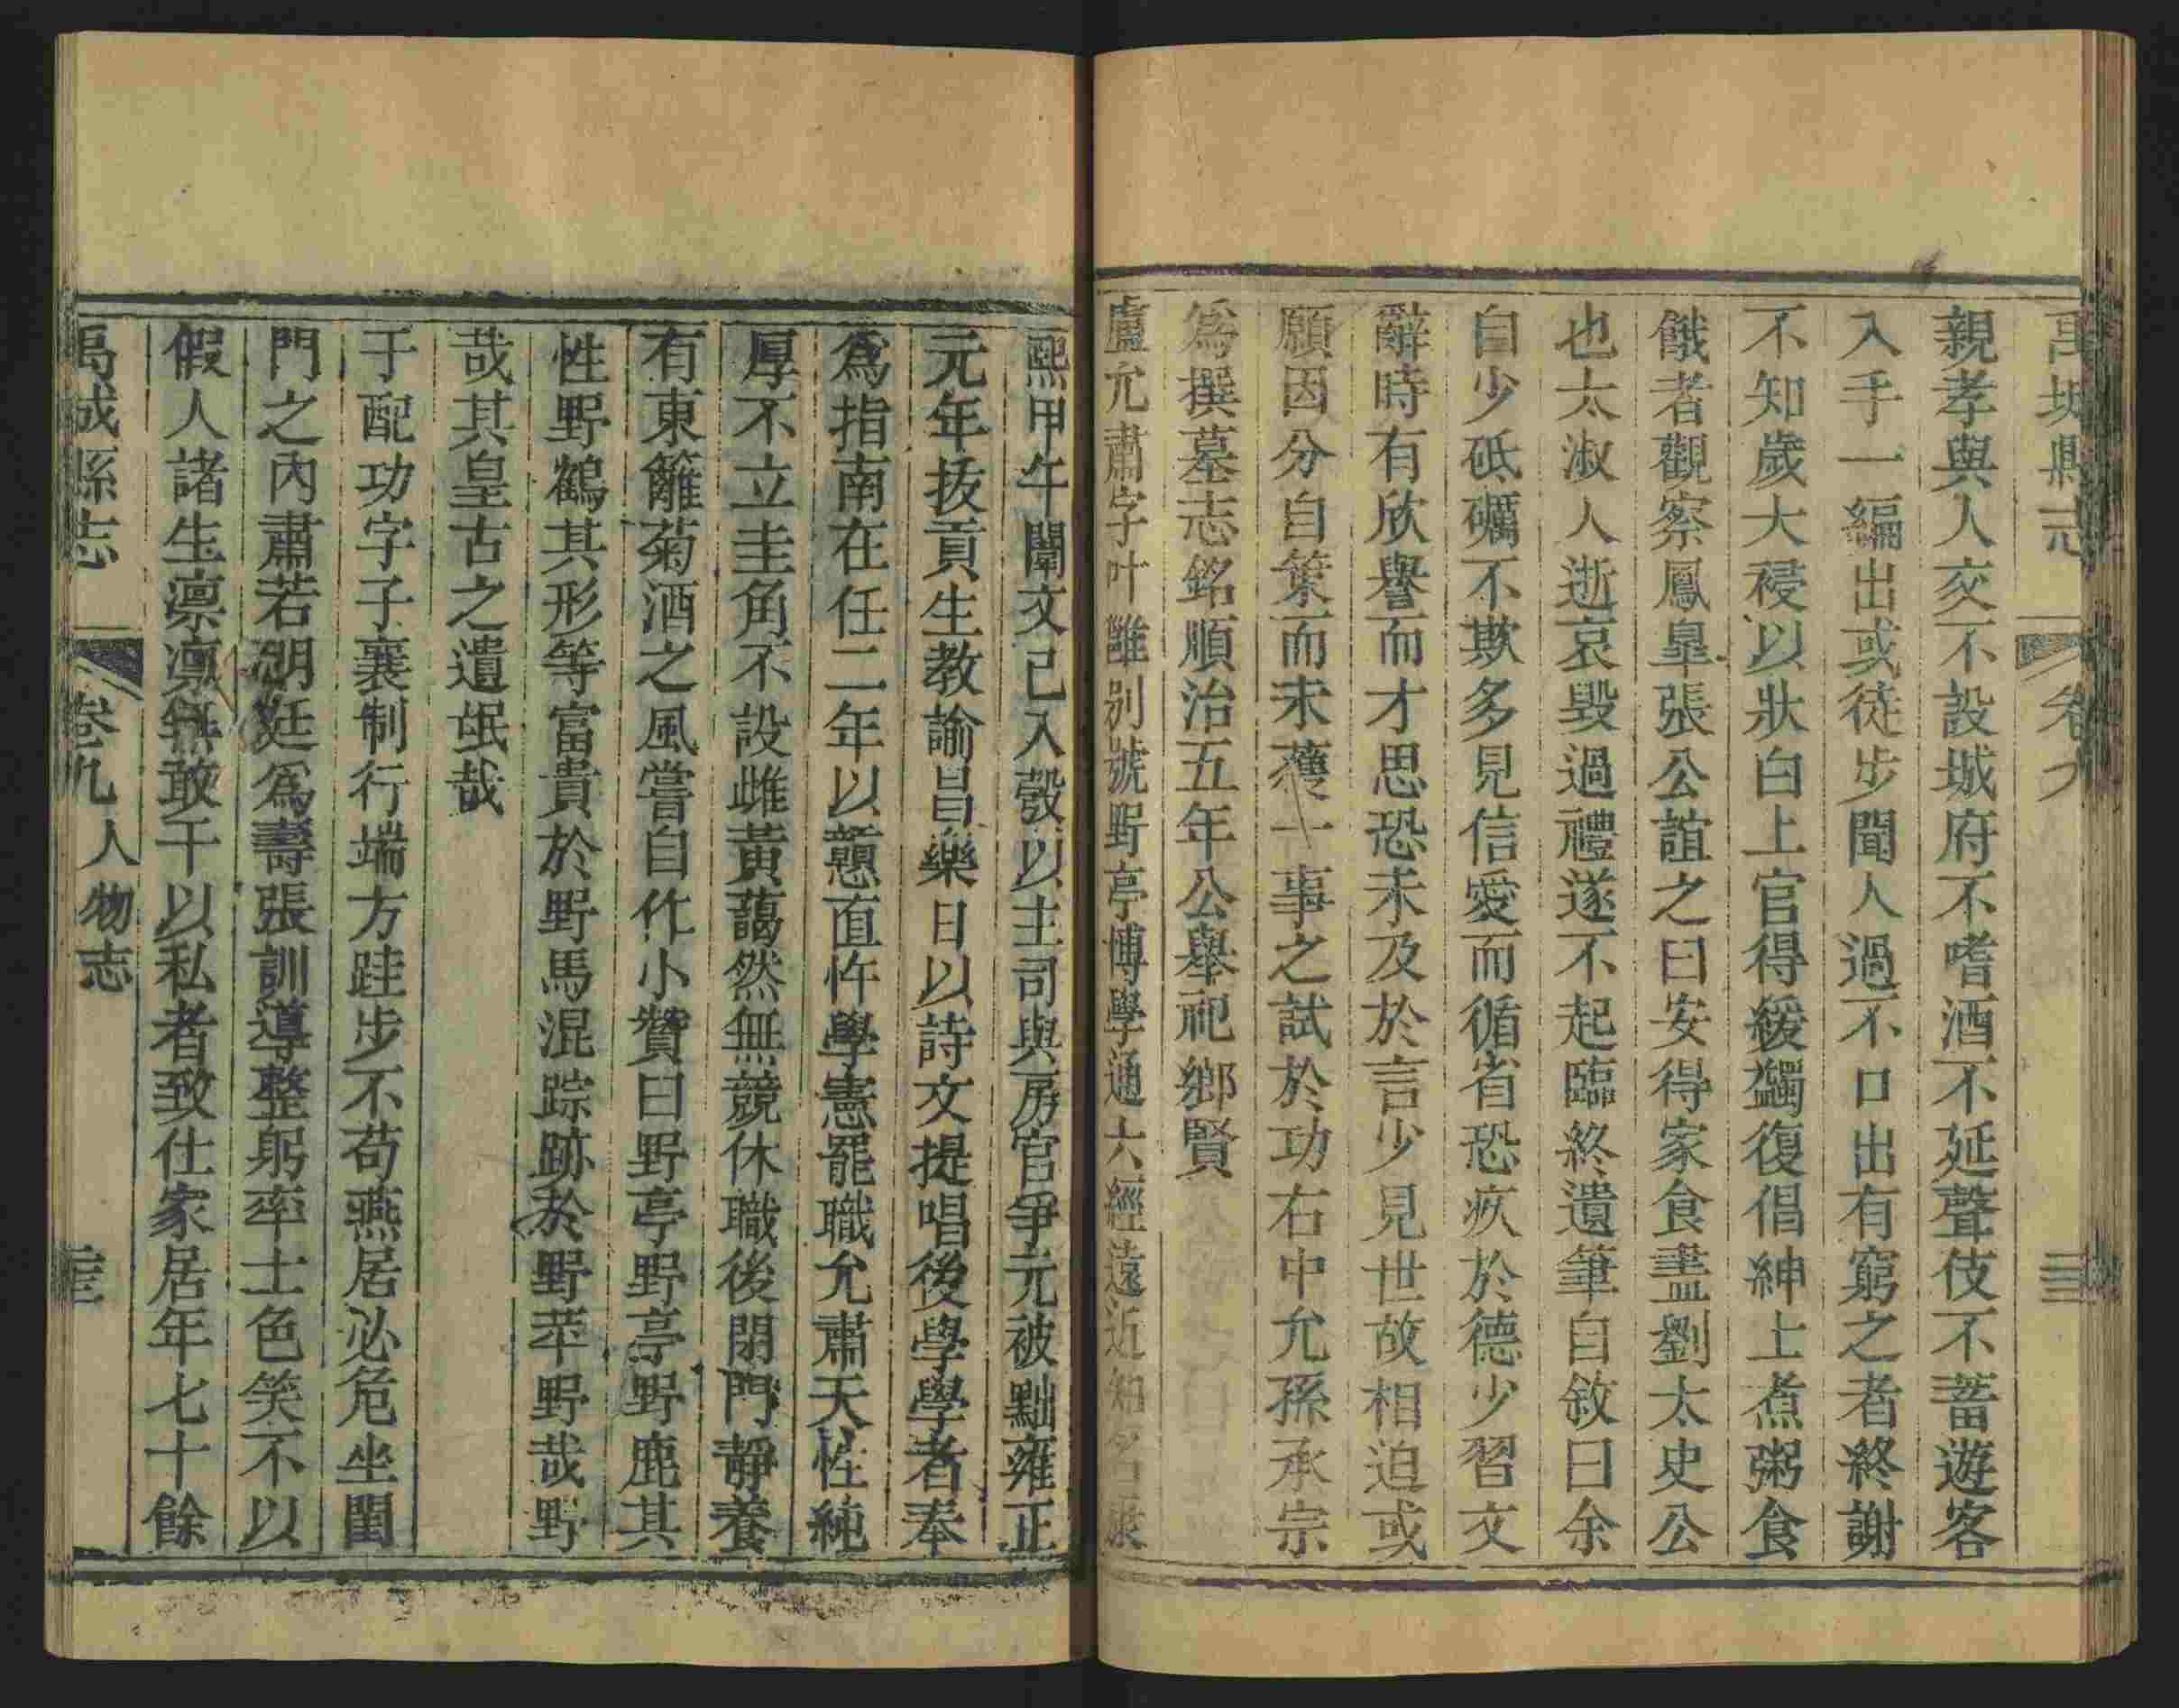 禹城縣志 卷九
親孝與人交不設城府不嗜酒不延聲伎不蓄遊客
入手一編出或徒步聞人過不口出有窮之者終謝
不知歲大祲以狀白上官得緩蠲復倡紳士煮粥食
餓者觀察鳳臯張公誼之曰安得家食盡劉太史公
也太淑人逝哀毀過禮遂不起臨終遺筆自敘曰余
自少砥礪不欺多見信愛而循省恐疚於德少習文
辭時有欣譽而才思恐未及於言少見世故相迫或
願因分自策而未獲一事之試於功右中允孫承宗
爲撰墓志銘順治五年公舉祀鄉賢
盧允肅字叶雝別號野亭博學通六經遠近知名康
熙甲午闈文已入彀以主司與房官爭元被黜雍正
元年拔貢生教諭昌樂日以詩文提唱後學學者奉
爲指南在任二年以戇直忤學憲罷職允肅天性純
厚不立圭角不設雌黃藹然無競休職後閉門靜養
有東籬菊酒之風嘗自作小贊曰野亭野亭野鹿其
性野鶴其形等富貴於野馬混踪跡於野苹野哉野
哉其皇古之遺氓哉
于配功字子襄制行端方跬步不苟燕居必危坐閨
門之內肅若朝廷爲壽張訓導整躬率士色笑不以
假人諸生凛凛無敢干以私者致仕家居年七十餘
禹城縣志 卷九 人物志